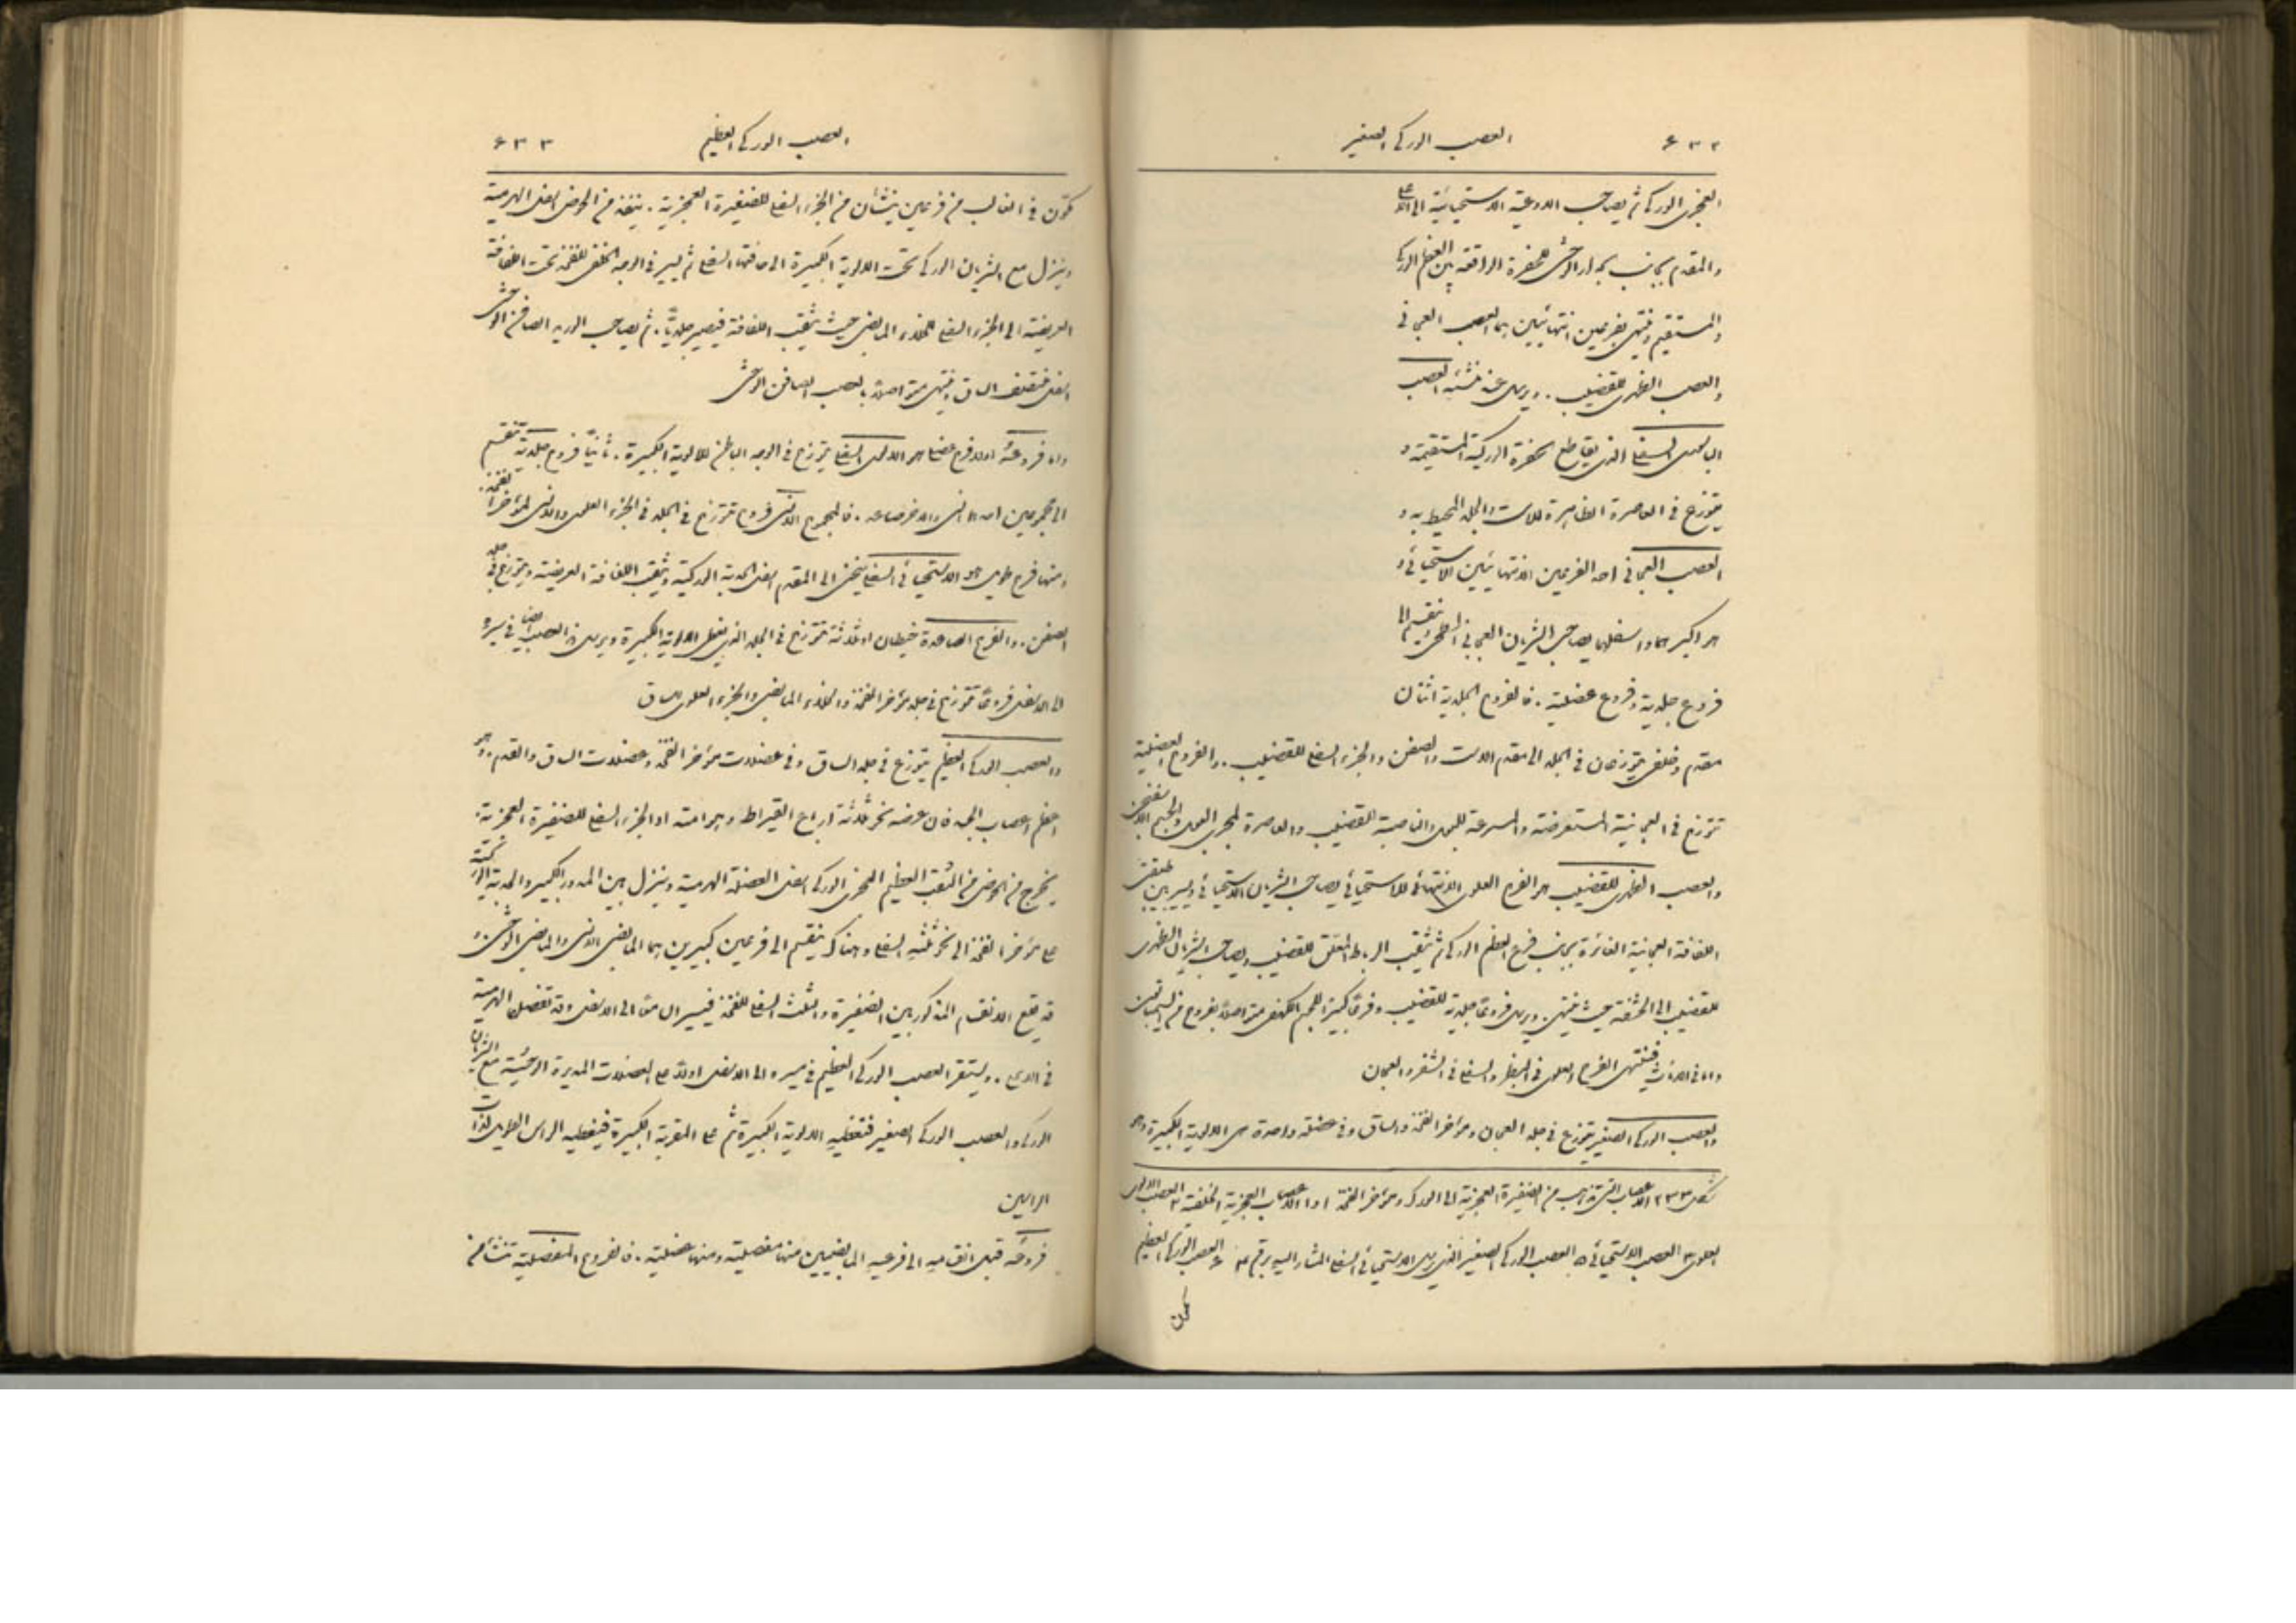 ٦٣٢ العصب الوركي الصغير
العجزي الوركي ثم يصاحب الاوعية الاستحيائية الى الاعلى
والمقدم بجانب الجدار الوحشي للحفرة الواقعة بين العظم الوركي
والمستقيم وينتهي بفرعين انتهائيين هما العصب العجاني
والعصب الظهري للقضيب . ويرسل عند منشئه العصب
الباسوري السفلي الذي يقاطع الحفرة الوركية المستقيمة و
يتوزع في العاصرة الظاهرة للاست والجلد المحيط به و
العصب العجاني احد الفرعين الانتهائيين للاستحيائي و
هو اكبرهما واسفلهما يصاحب الشريان العجاني السطحي وينقسم الى
فروع جلدية وفروع عضلية . فالفروع الجلدية اثنان
مقدم وخلفي يتوزعان في الجلد الى مقدم الاست والصفن والجزء السفلي للقضيب . والفروع العضلية
تتوزع في العجانية المستعرضة والمسرعة للبول والناصبة القضيب والعاصرة لمجرى البول والجسم الاسفنجي
والعصب الظهري للقضيب هو الفرع العلوي الانتهائي للاستحيائي يصاحب الشريان الاستحيائي ويسير بين طبقتي
اللفافة العجانية الغائرة بجانب فرع العظم الوركي ثم يثقب الرباط المعلق للقضيب ويصاحب الشريان الظهري
للقضيب الى الحشفة حيث ينتهي . ويرسل فروعًا جلدية للقضيب وفرعًا كبيرًا للجسم الكهفي متواصلًا بفروع من السيمباتي
واما في الاناث فينتهي الفرع العلوي في البظر والسفلي في الشفر والعجان
والعصب الوركي الصغير يتوزع في جلد العجان ومؤخر الفخذ والساق وفي عضلة واحدة هي الالوية الكبيرة وهو
شكل ٢٣٣ الاعصاب التي تذهب من الضفيرة العجزية الى الورك ومؤخر الفخذ ١ و١ الاعصاب العجزية الخلفية ٢ العصب الالوي
العلوي ٣ العصب الاستحيائي ٥ العصب الوركي الصغير الذي يرسل الاستحيائي السفلي المشار اليه برقم ٤ ٦ العصب الوركي العظيم
العصب الوركي العظيم ٦٣٣
تكون في الغالب من فرعين ينشأان من الجزء السفلي للضفيرة العجزية . ينفذ من الحوض اسفل الهرمية
وينزل مع الشريان الوركي تحت الالوية الكبيرة الى حافتها السفلى ثم يسير في الوجه الخلفي للفخذ تحت اللفافة
العريضة الى الجزء السفلي للخلاء المابضي حيث يثقب اللفافة فيصير جلديًا . ثم يصاحب الوريد الصافن الوحشي
اسفل منتصف الساق وينتهي متواصلًا بالعصب الصافن الوحشي
واما فروعه اولا فرع عضلي هو الالوي السفلي يتوزع في الوجه الباطن للالوية الكبيرة . ثانيًا فروع جلدية تنقسم
الى مجموعين احدهما انسي والاخر صاعد . فالمجموع الانسي فروع تتوزع في الجلد في الجزء العلوي والانسي لمؤخر الفخذ .
ومنها فرع طويل هو الاستحيائي السفلي ينحني الى المقدم اسفل الحدبة الوركية ويثقب اللفافة العريضة ويتوزع في جلد
الصفن . والفروع الصاعدة خيطان او ثلاثة تتوزع في الجلد الذي يغطي الالوية الكبيرة ويرسل هذا العصب ايضًا في مسيره
الى الاسفل فروعًا تتوزع في جلد مؤخر الفخذ والخلاء المابضي والجزء العلوي للساق
والعصب الوركي العظيم يتوزع في جلد الساق وفي عضلات مؤخر الفخذ وعضلات الساق والقدم . وهو
اعظم اعصاب الجسد فان عرضه نحو ثلاثة ارباع القيراط وهو امتداد الجزء السفلي للضفيرة العجزية .
يخرج من الحوض من الثقب العظيم العجزي الوركي اسفل العضلة الهرمية وينزل بين المدور الكبير والحدبة الوركية
على مؤخر الفخذ الى نحو ثلثه السفلي وهناك ينقسم الى فرعين كبيرين هما المابضي الانسي والمابضي الوحشي . و
قد يقع الانقسام المذكور بين الضفيرة والثلث السفلي للفخذ فيسيران معًا الى الاسفل وقد تفصل الهرمية
في الاعلى . ويستقر العصب الوركي العظيم في مسيره الى الاسفل اولًا على العضلات المديرة الوحشية مع الشريان
الوركي والعصب الوركي الصغير فتغطيه الالوية الكبيرة ثم على المقربة الكبيرة فيغطيه الراس الطويل لذات
الراسين
فروعه قبل انقسامه الى فرعيه المابضيين منها مفصلية ومنها عضلية . فالفروع المفصلية تنشأ من